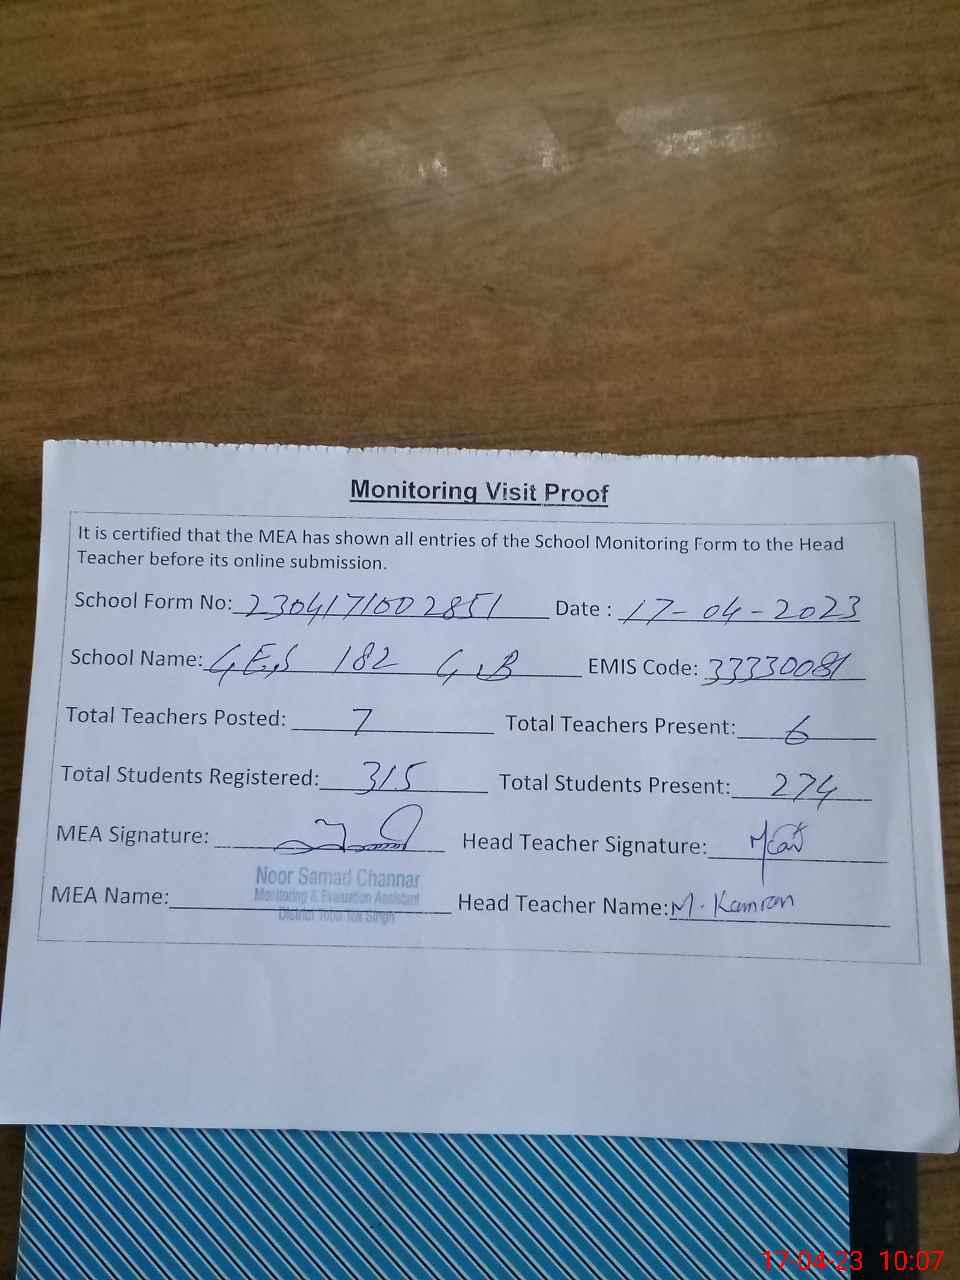 Monitoring Visit Proof
It is certified that the MEA has shown all entries of the School Monitoring Form to the Head
Teacher before its online submission.
School Form No: 2304171002851 Date : 17-04-2023
School Name: GES 182 GB EMIS Code: 33330081
Total Teachers Posted: 7 Total Teachers Present: 6
Total Students Registered: 315 Total Students Present: 274
MEA Signature: Head Teacher Signature:
Noor Samad Channar
Monitoring & Evaluation Assistant
District Toba Tek Singh
MEA Name: Head Teacher Name: M. Kamran
17-04-23 10:07